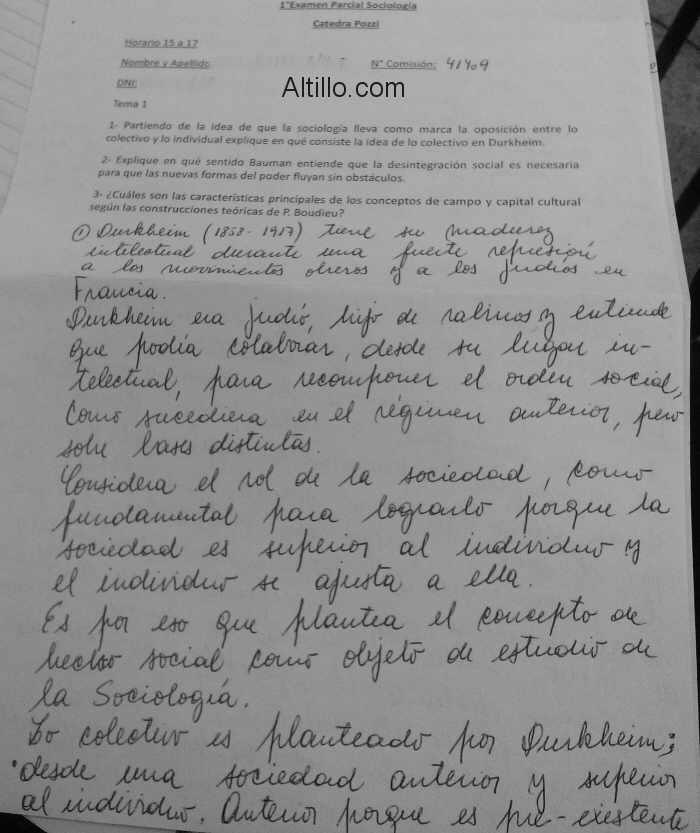 1°Examen Parcial Sociología
Catedra Pozzi
Horario 15 a 17
Nombre y Apellido N° Comisión: 41409
DNI:
Altillo.com
Tema 1
1- Partiendo de la idea de que la sociología lleva como marca la oposición entre lo
colectivo y lo individual explique en qué consiste la idea de lo colectivo en Durkheim.
2- Explique en qué sentido Bauman entiende que la desintegración social es necesaria
para que las nuevas formas del poder fluyan sin obstáculos.
3- ¿Cuáles son las características principales de los conceptos de campo y capital cultural
según las construcciones teóricas de P. Boudieu?
① Durkheim (1858-1917) tiene su madurez
intelectual durante una fuerte represión
a los movimientos obreros y a los judíos en
Francia.
Durkheim era judió, hijo de rabinos y entiende
que podía colaborar, desde su lugar in-
telectual, para recomponer el orden social,
como sucediera en el régimen anterior, pero
sobre bases distintas.
Considera el rol de la sociedad, como
fundamental para lograrlo porque la
sociedad es superior al individuo y
el individuo se ajusta a ella.
Es por eso que plantea el concepto de
hecho social como objeto de estudio de
la Sociología.
Lo colectivo es planteado por Durkheim;
desde una sociedad anterior y superior
al individuo. Anterior porque es pre-existente